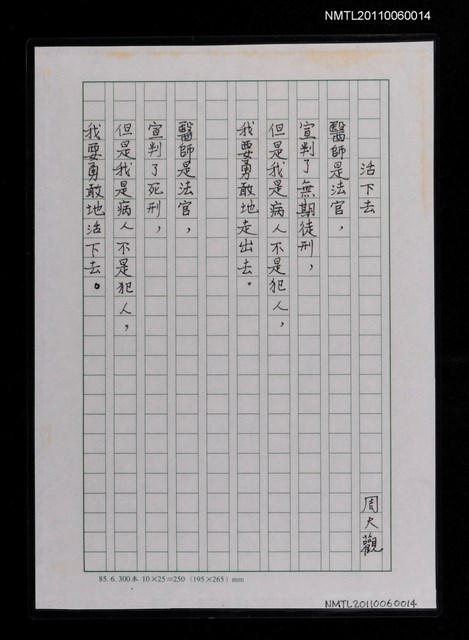 NMTL20110060014
活下去
周大觀
醫師是法官，
宣判了無期徒刑，
但是我是病人不是犯人，
我要勇敢地走出去。
醫師是法官，
宣判了死刑，
但是我是病人不是犯人，
我要勇敢地活下去。
85. 6. 300本 10×25=250 (195×265) mm
NMTL20110060014